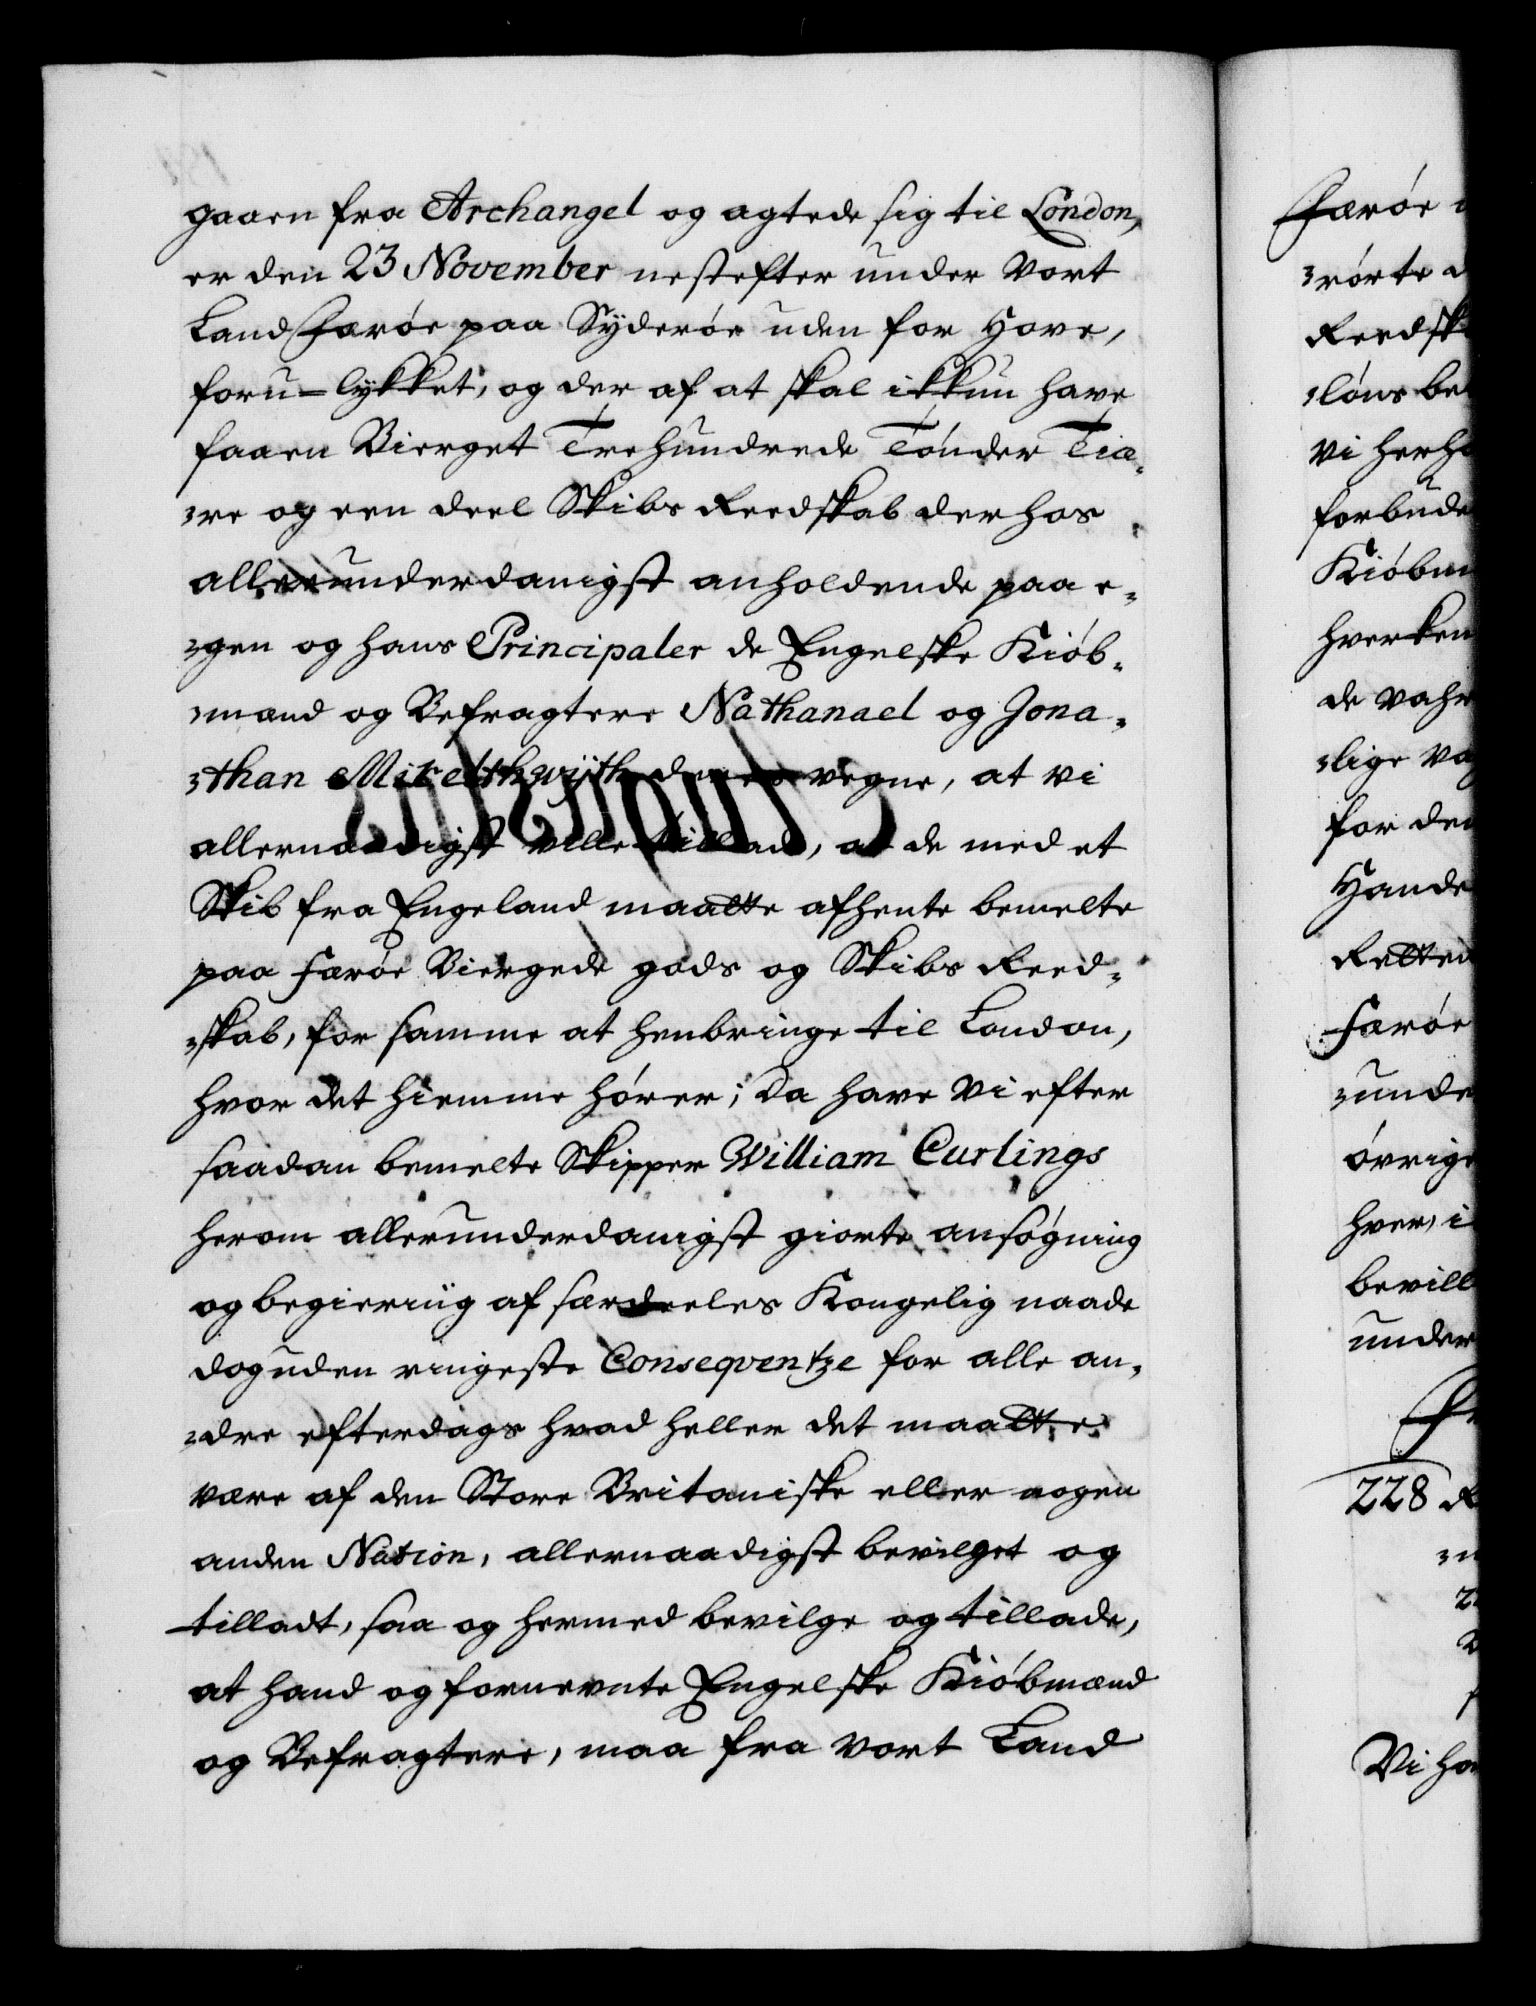 gaaen fra Archangel og agtede sig til London,
er den 23 November nestefter under Vort
Land Færøe paa Syderøe uden for Hove,
foru-lykket, og der af at skal ikkun have
faaen Bierget Trehundrede Tønder Tiæ-
-re og een deel Skibs Reedskab derhos
allerunderdanigst anholdende paa e-
-gen og hans Principaler de Engelske Kiøb-
-mænd og Befragtere Nathanael og Jona-
-than deres vegne, at vi
allernaadigst ville tillade, at de med et
Skib fra Engeland maatte afhente bemelte
paa Færøe Biergede gods og Skibs Reed-
-skab, for samme at henbringe til London,
hvor det hiemme hører; Da have Vi efter
saadan bemelte Skipper William Curlings
herom allerunderdanigst giorte ansøgning
og begiering af særdeeles Kongelig naade
dog uden ringeste Conseqventze for alle an-
-dre efterdags hvad heller det maatte
være af den Store Britaniske eller nogen
anden Nation, allernaadigst bevilget og
tilladt, saa og hermed bevilge og tillade,
at hand og fornevnte Engelske Kiøbmænd
og Befragtere, maa fra vort Land
Færøe
-rørte
Reedsk
-løns be
Vi herh
forbude
Kiøbm
hverken
de vahr
-lige va
for den
Hande
Retten
Færøe
-unde
øvrige
hver, i
bevill
under
228
Vi ha